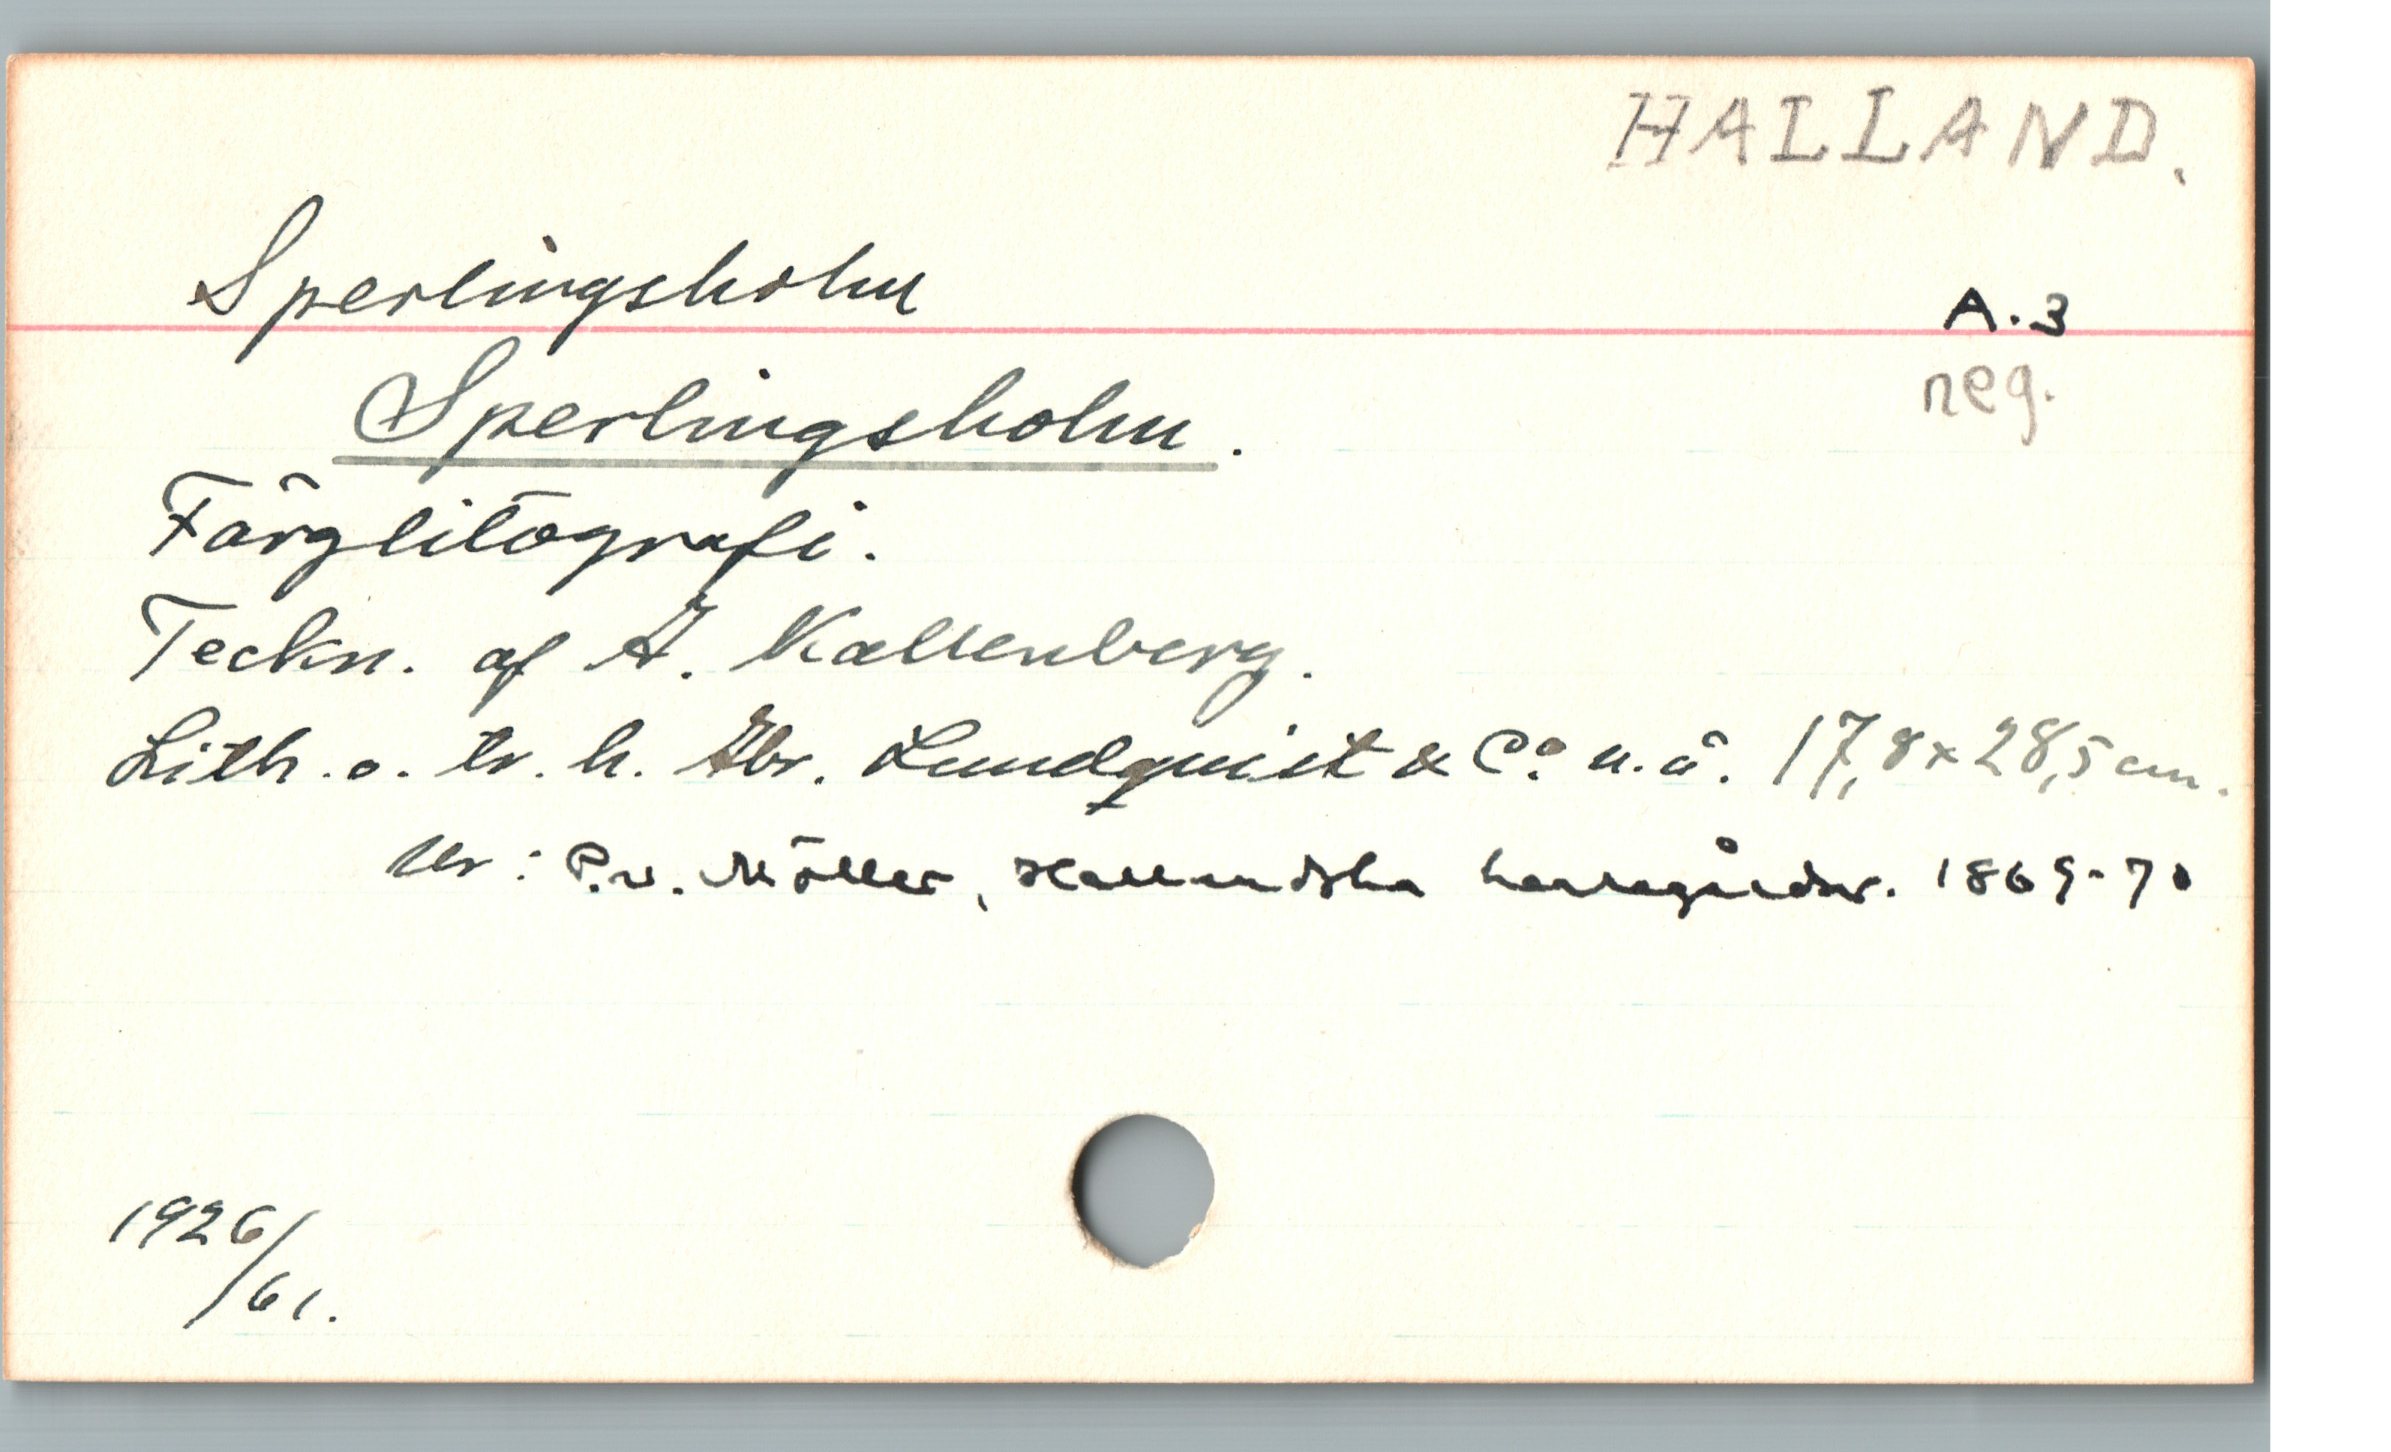 HALLAND.
Sperlingsholm
A.3
Sperlingsholm.
neg.
Färglitografi.
Teckn. af A. Kallenberg.
Lith. o. tr. h. Abr. Lundquist & Co. u. å. 17,8 x 28,5 cm.
Ur: P. v. Möller, Halländska herregårdar. 1869-70
1926/61.